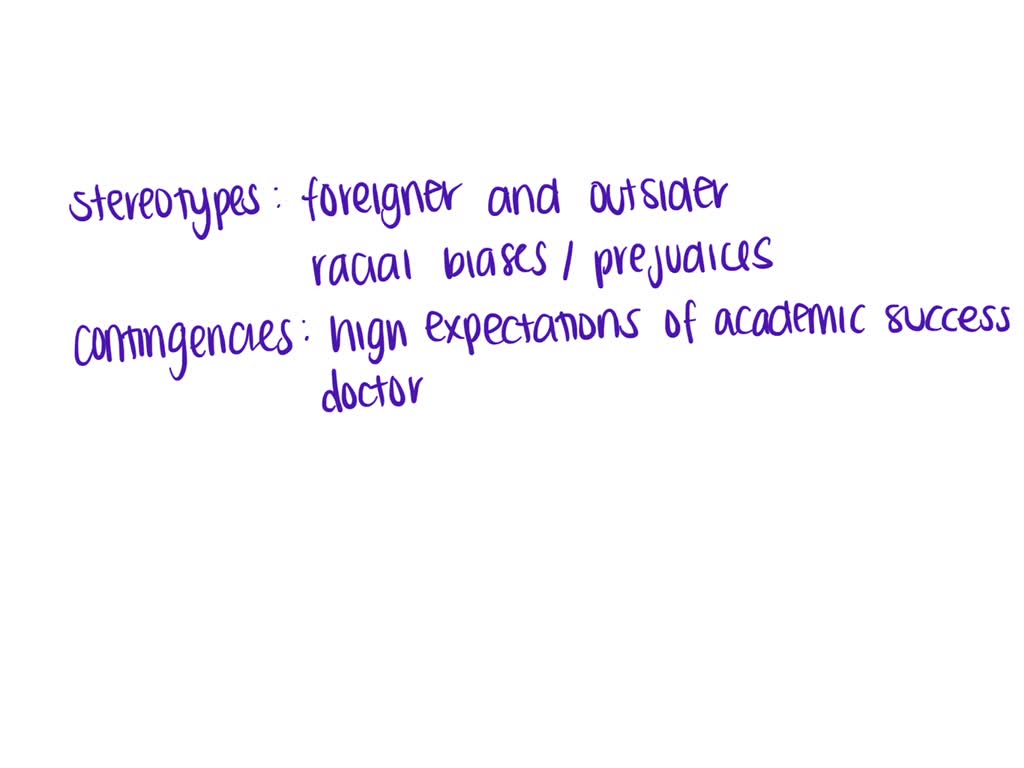 stereotypes: foreigner and outsider
racial biases / prejudices
contingencies: high expectations of academic success
doctor